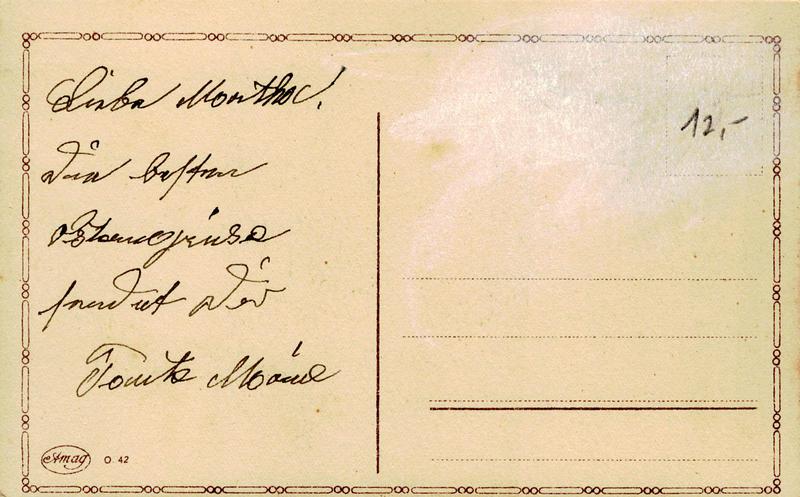 Liebe Martha!
Die besten
Ostergrüße
sendet Dir
Tante
12,-
Amag O. 42